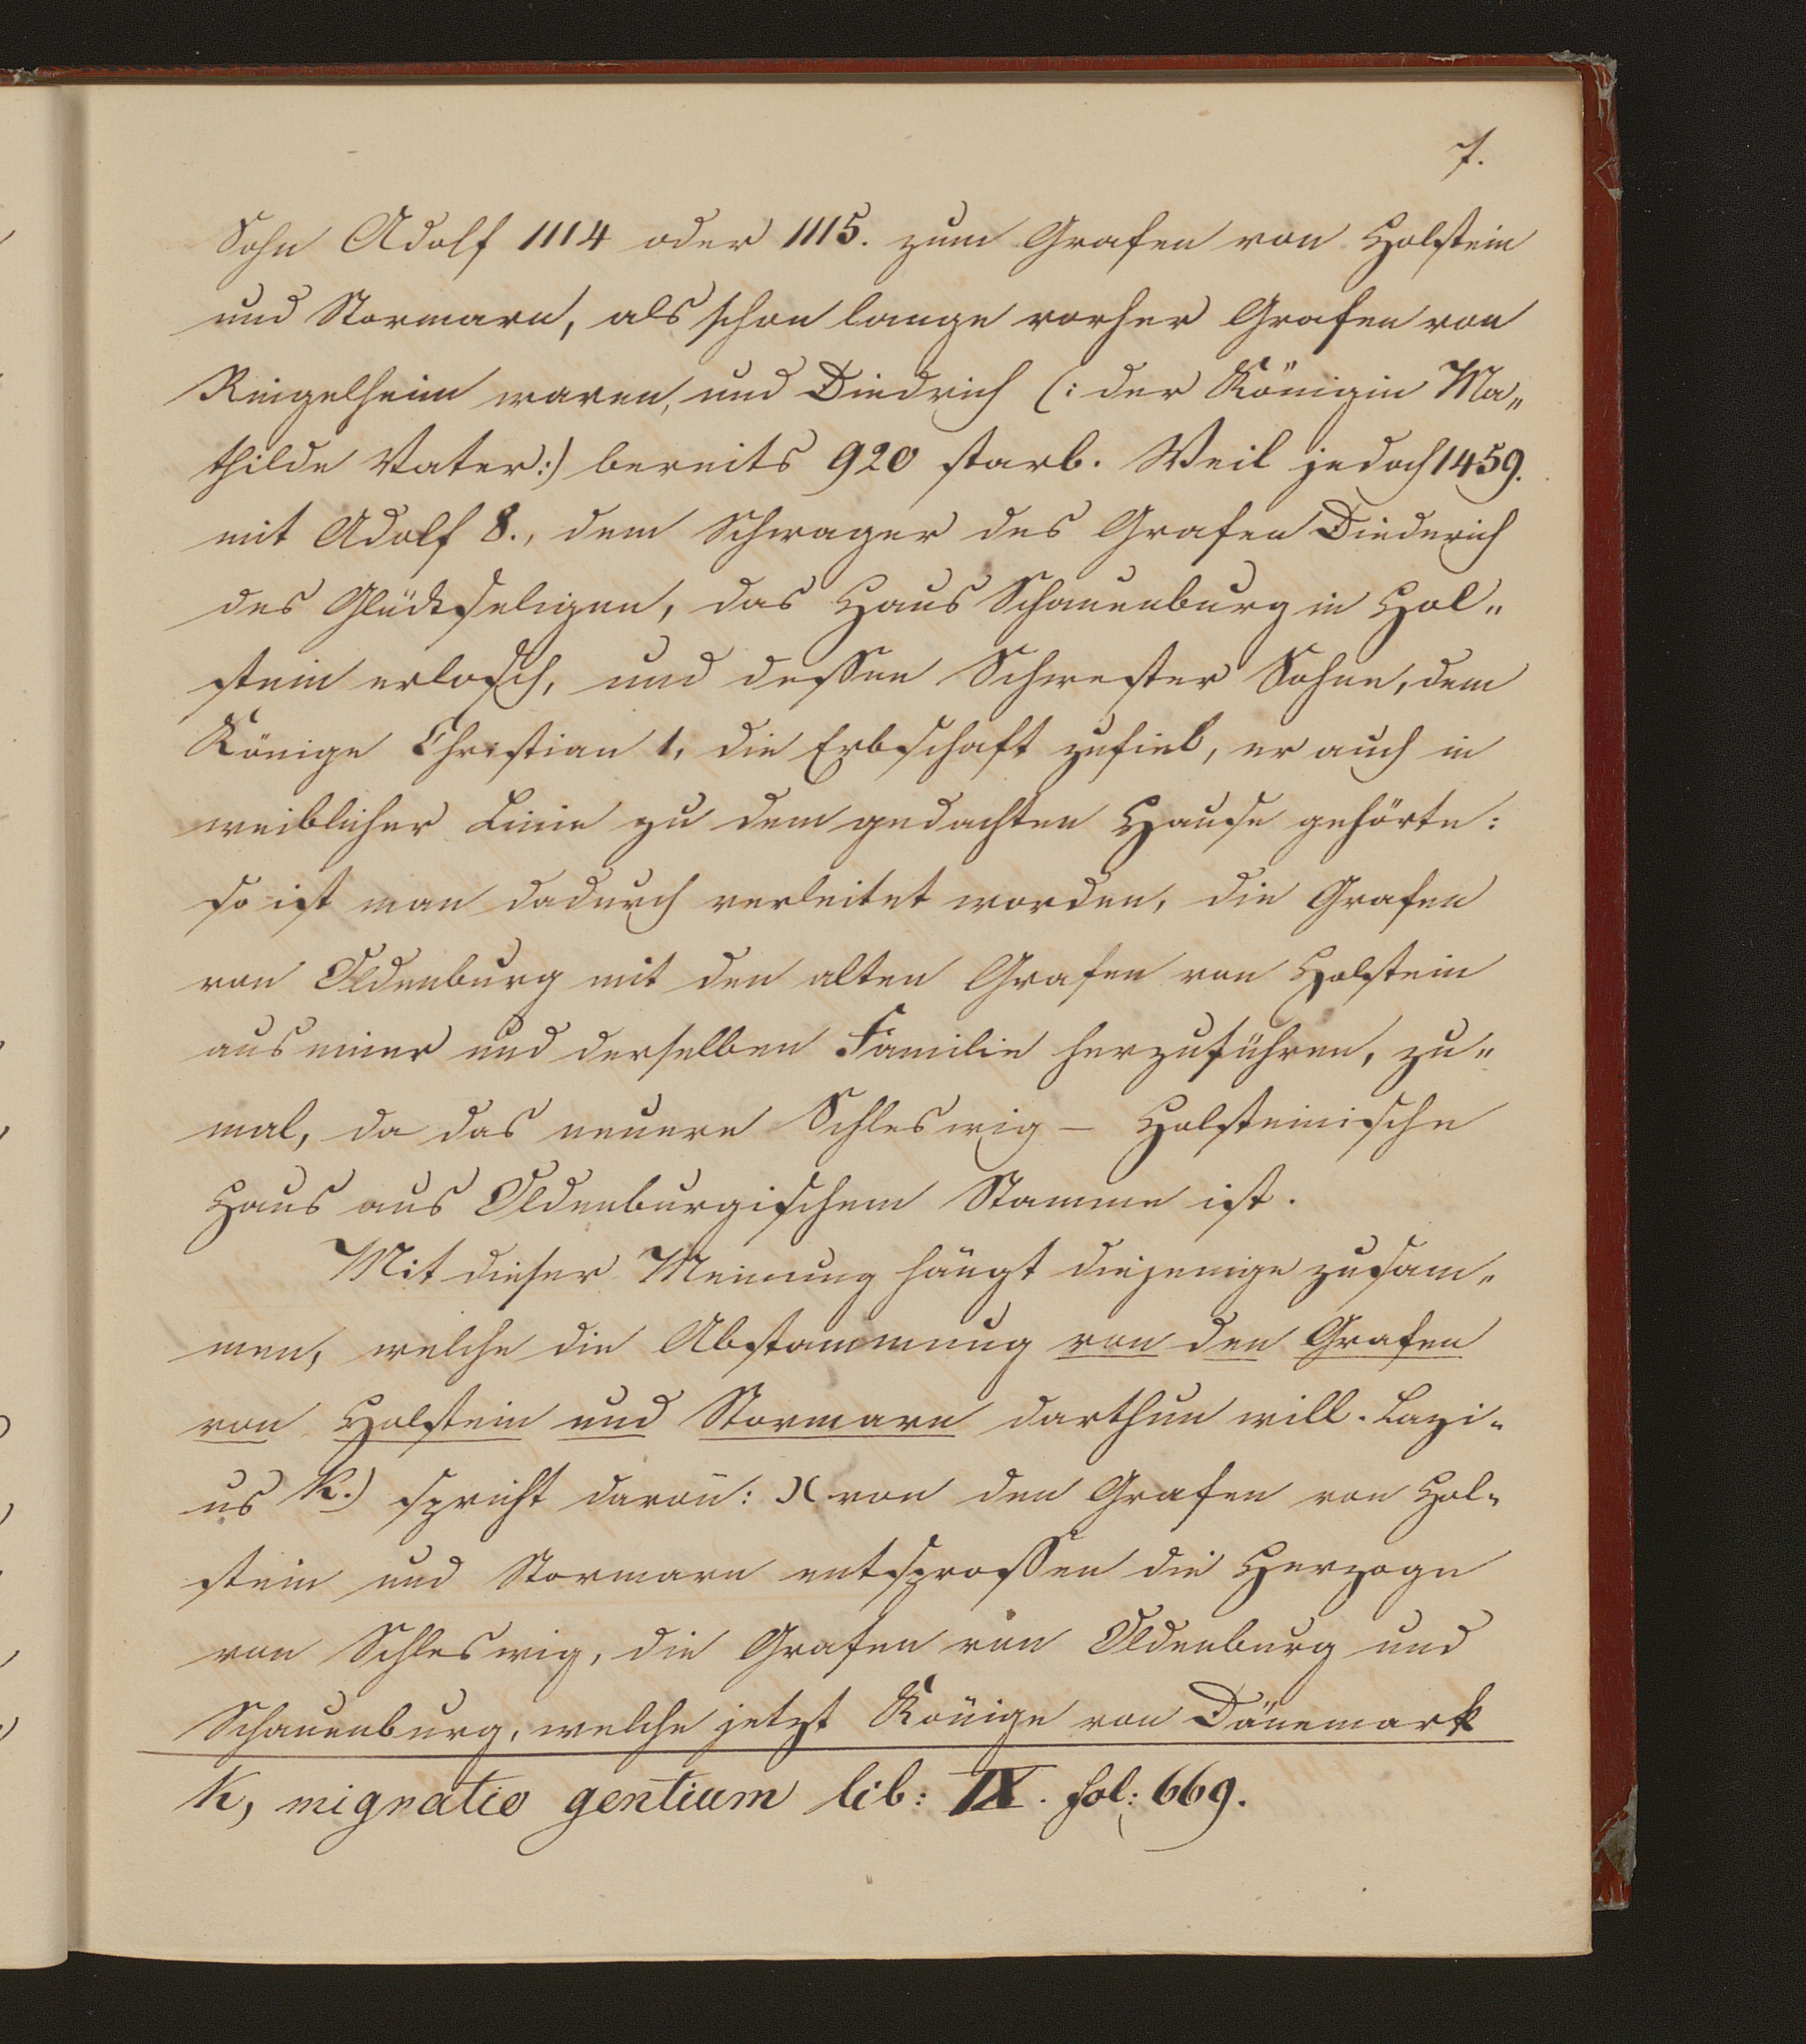 7.
Sohn Adolf 1114 oder 1115. zum Grafen von Holstein
und Stormarn, als schon lange vorher Grafen von
Ringelheim waren, und Diedrich (: der Königin Ma„
thilde Vater:) bereits 920 starb. Weil jedoch 1459.
mit Adolf 8., dem Schwager des Grafen Diederich
des Glückseligen, das Haus Schauenburg in Hol„
stein erlosch, und dessen Schwester Sohne, dem
Könige Christian 1. die Erbschaft zufiel, er auch in
weiblicher Linie zu dem gedachten Hause gehörte:
so ist man dadurch verleitet worden, die Grafen
von Oldenburg mit den alten Grafen von Holstein
aus einer und derselben Familie herzuführen, zu„
mal, da das neuere Schleswig – Holsteinische
Haus aus Oldenburgischem Stamme ist.
Mit dieser Meinung hängt diejenige zusam„
men, welche die Abstammung von den Grafen
von Holstein und Stormarn darthun will. Lazi„
us k.) spricht davon: )( von den Grafen von Hol„
stein und Stormarn entsprossen die Herzoge
von Schleswig, die Grafen von Oldenburg und
Schauenburg, welche jetzt Könige von Dänemark
k, mignatio gentium lib: IX. fol: 669.